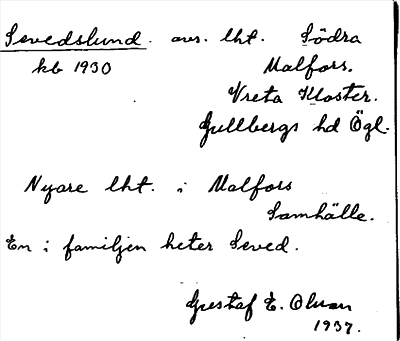 Sevedslund. avs. lht. Södra
kb 1930 Malfors.
Vreta Kloster.
Gullbergs hd Ögl.
Nyare lht. i Malfors
Samhälle.
En i familjen heter Seved.
Gustaf E. Olsson
1937.